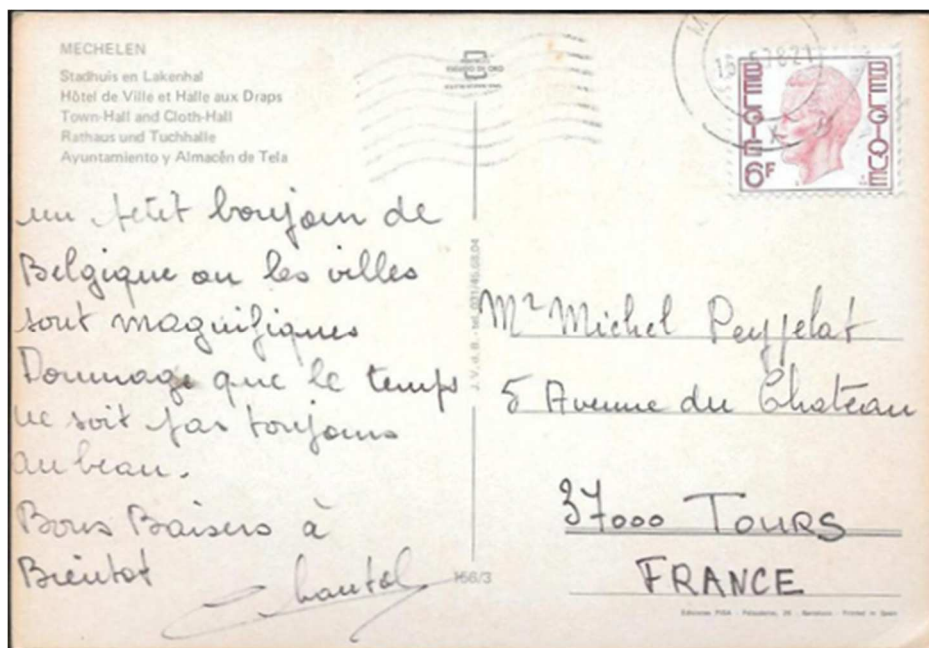 MECHELEN
Stadhuis en Lakenhal
Hôtel de Ville et Halle aux Draps
Town-Hall and Cloth-Hall
Rathaus und Tuchhalle
Ayuntamiento y Almacén de Tela
un petit bonjour de
Belgique ou les villes
sont magnifiques
Dommage que le temps
ne soit pas toujours
au beau.
Bons Baisers à
Bientot
Chantal
ESCUDO DE ORO
J. V. d. B. - tel. 031/46.68.04
156/3
BELGIE
BELGIQUE
6F
Mr Michel Peyjelat
5 Avenue du Chateau
37000 TOURS
FRANCE
Printed in Spain